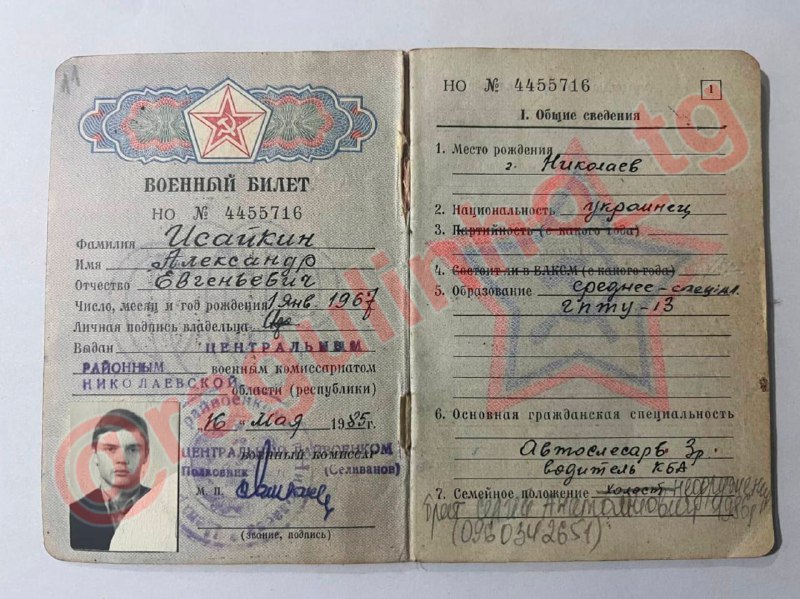 11
ВОЕННЫЙ БИЛЕТ
НО № 4455716
Фамилия Исайкин
Имя Александр
Отчество Евгеньевич
Число, месяц и год рождения 1 янв. 1967
Личная подпись владельца
Выдан ЦЕНТРАЛЬНЫМ
РАЙОННЫМ военным комиссариатом
НИКОЛАЕВСКОЙ области (республики)
16 " Мая 1985г.
Военный комиссар
ЦЕНТРАЛЬНЫМ РАЙВОЕНКОМ
Полковник (Селиванов)
М. П.
(звание, подпись)
НО № 4455716
1
I. Общие сведения
1. Место рождения
г. Николаев
2. Национальность украинец
3. Партийность (с какого года)
4. Состоит ли в ВЛКСМ (с какого года)
5. Образование среднее-специал.
ГПТУ-13
6. Основная гражданская специальность
Автослесарь 3р.
водитель КБА
7. Семейное положение холост
(0960342651)